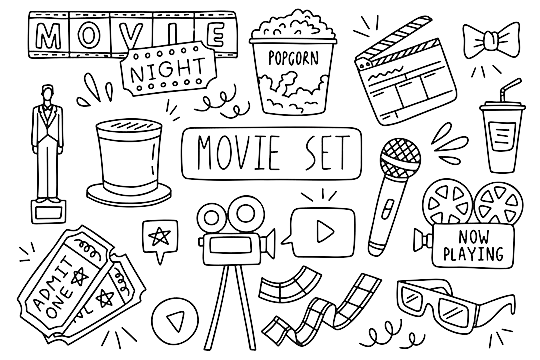 MOVIE
NIGHT
POPCORN
MOVIE SET
NOW
PLAYING
ADMIT
ONE
NE